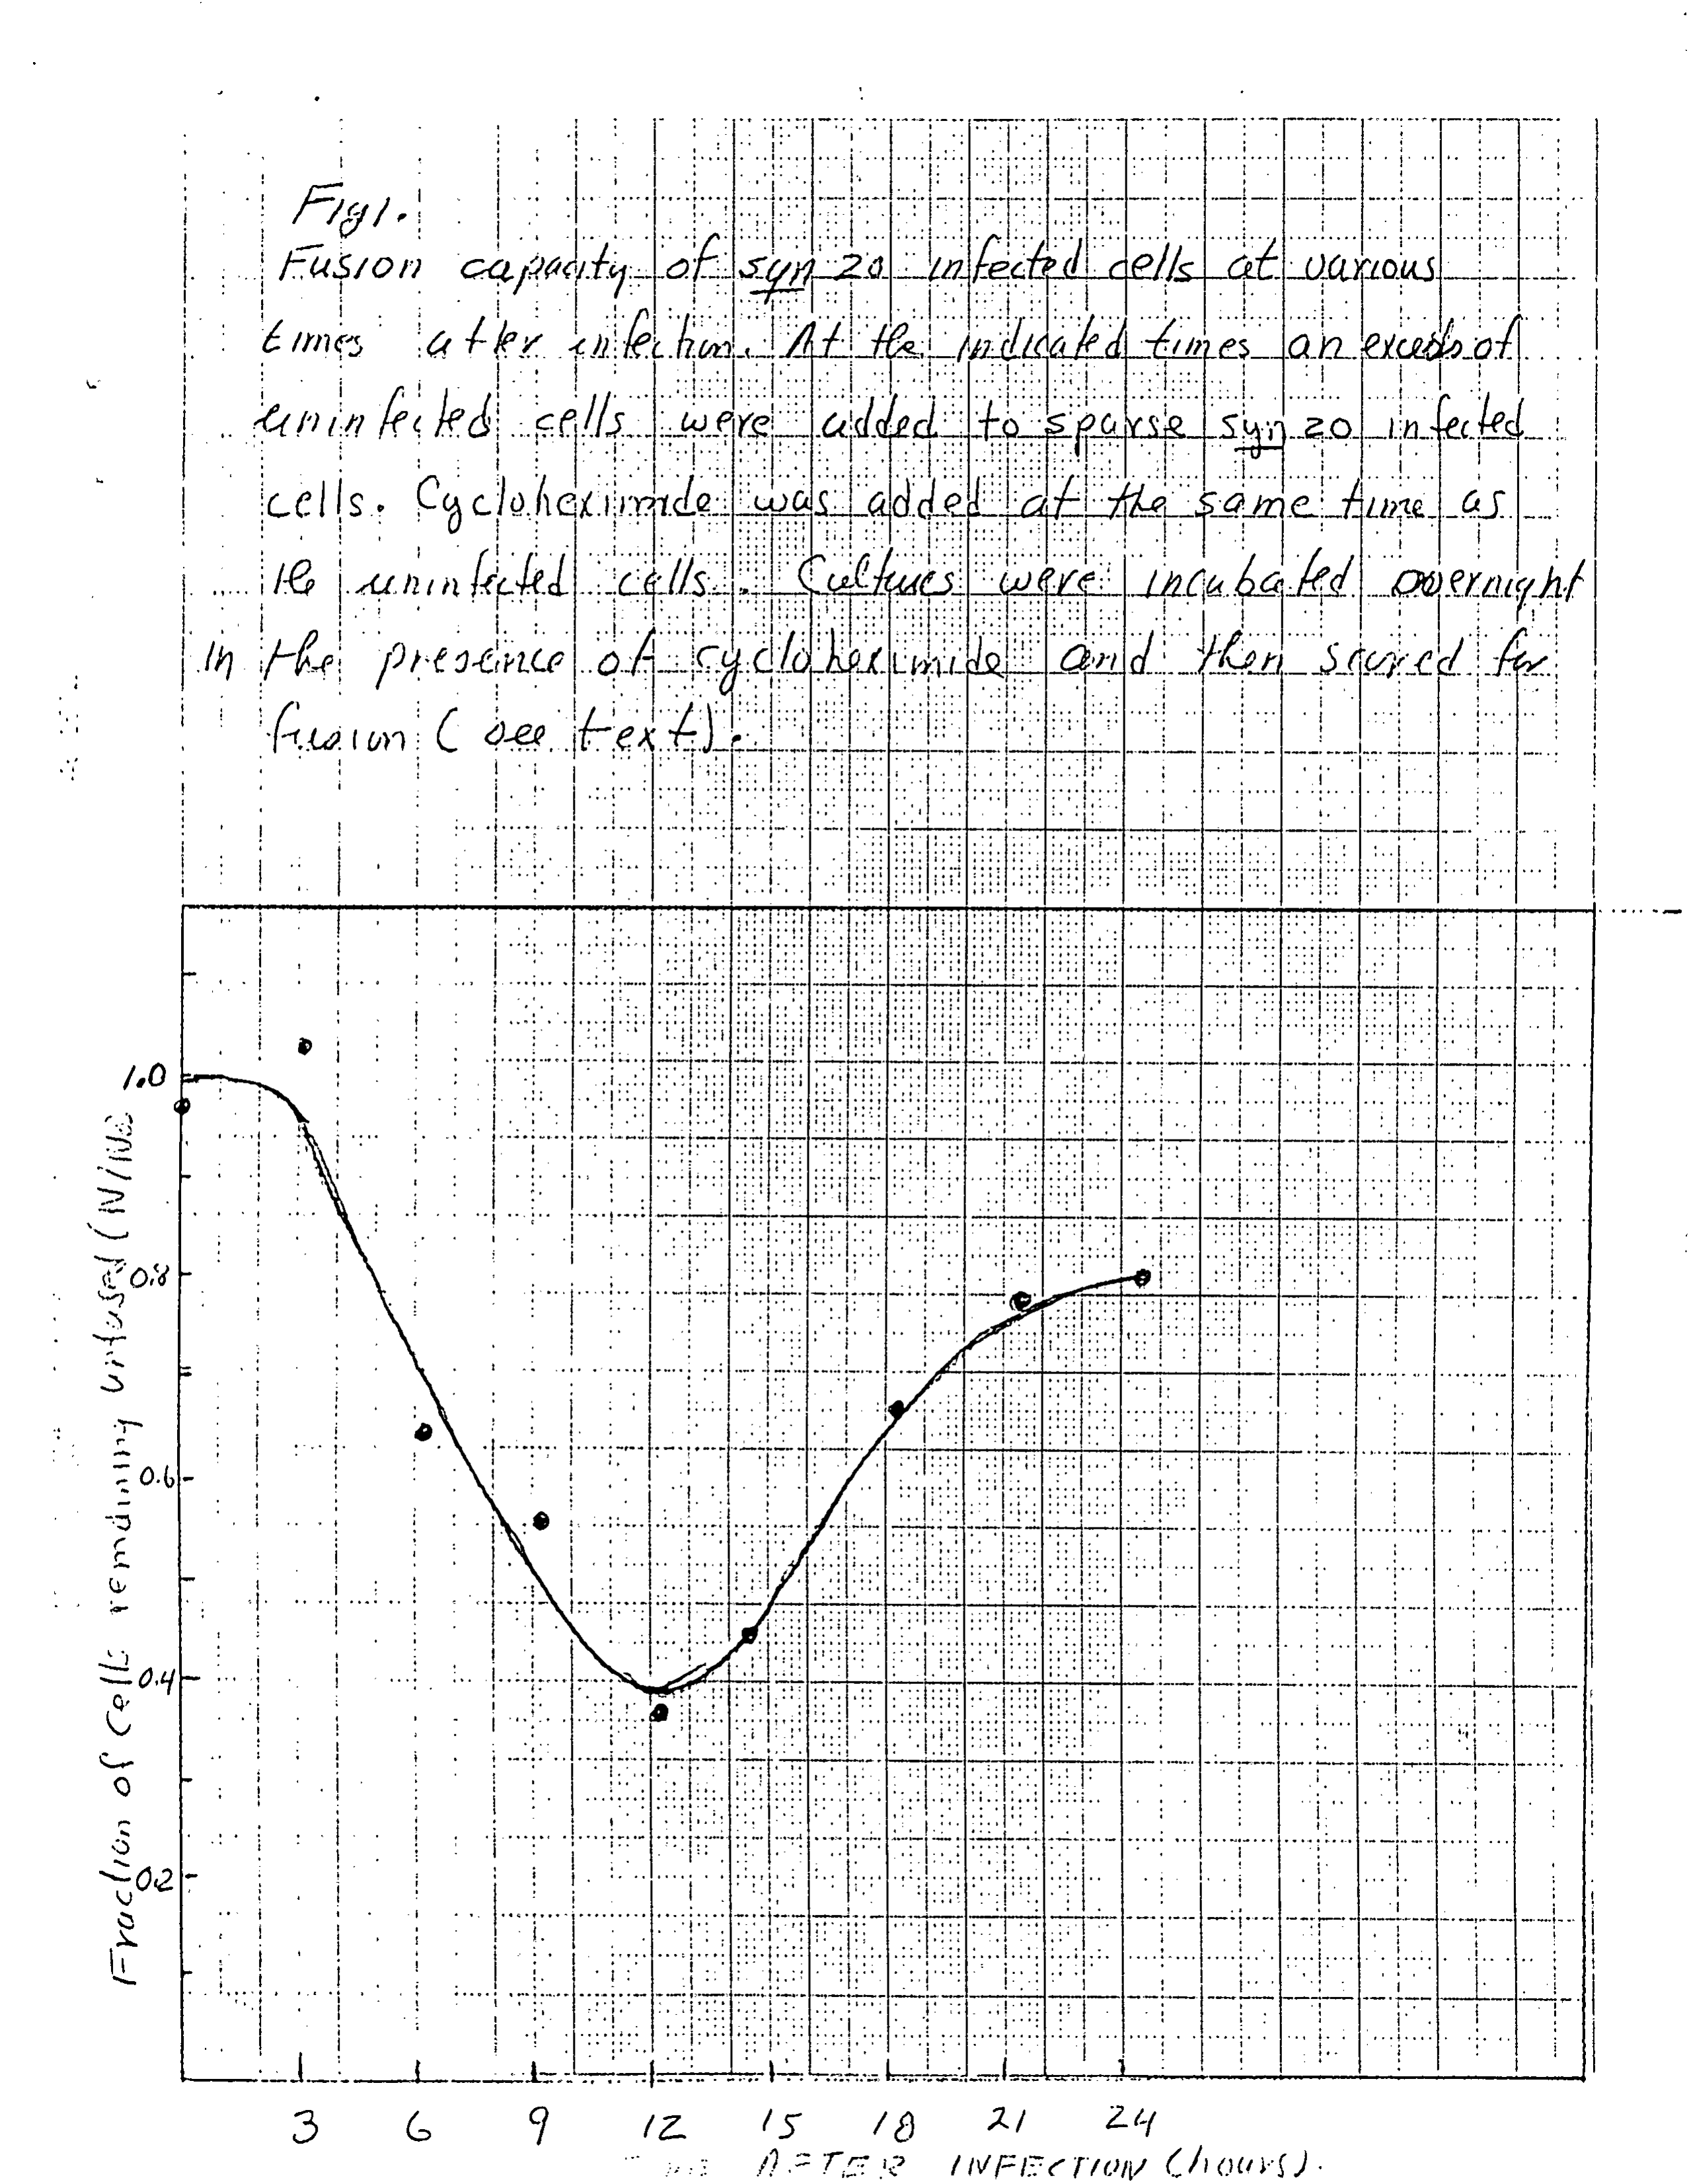 Fig 1.
Fusion capacity of syn 20 infected cells at various
times after infection. At the indicated times an excess of
uninfected cells were added to sparse syn 20 infected
cells. Cycloheximide was added at the same time as
the uninfected cells. Cultures were incubated overnight
in the presence of cycloheximide and then scored for
fusion (see text).
1.0
0.8
0.6
0.4
0.2
Fraction of Cells remaining unfused (N/No
3 6 9 12 15 18 21 24
AFTER INFECTION (hours).